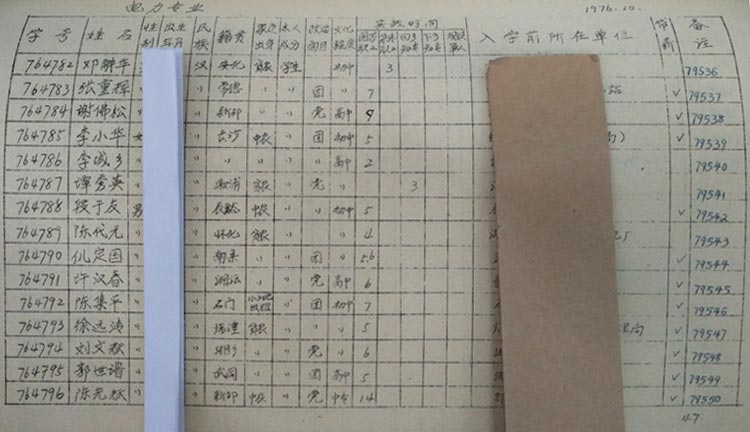 电力专业 1976.10.
学号 姓名 性别 出生年月 民族 籍贯 家庭出身 本人成分 政治面目 文化程度 实践时间 入学前所在单位 带薪 备注
回乡知青 下乡知青
764782 邓 华 汉 安化 贫农 学生 初中 3 79536
764783 张重辉 〃 常德 〃 〃 团 〃 7 ✓ 79537
764784 谢佛松 〃 新邵 〃 〃 党 高中 9 ✓ 79538
764785 李小华 女 〃 长沙 中农 〃 团 初中 5 ✓ 79539
764786 李 乡 〃 〃 〃 〃 〃 〃 高中 2 79540
764787 谭秀英 〃 〃 溆浦 贫农 〃 党 〃 3 79541
764788 段于友 男 〃 中农 〃 〃 初中 5 ✓ 79542
764789 陈代元 〃 〃 怀化 贫农 〃 〃 〃 4 79543
764790 仉定国 〃 〃 〃 〃 团 〃 5.6 ✓ 79544
764791 许汉春 〃 〃 湘沅 〃 〃 党 高中 6 ✓ 79545
764792 陈集平 〃 〃 石门 〃 团 初中 7 ✓ 79546
764793 徐远涛 〃 〃 贫农 〃 〃 〃 5 ✓ 79547
764794 刘文秋 〃 〃 湘乡 〃 〃 党 〃 6 ✓ 79548
764795 郭世谱 〃 〃 武冈 〃 〃 团 高中 5 ✓ 79549
764796 陈光 〃 〃 新邵 中农 〃 党 中专 14 ✓ 79550
47